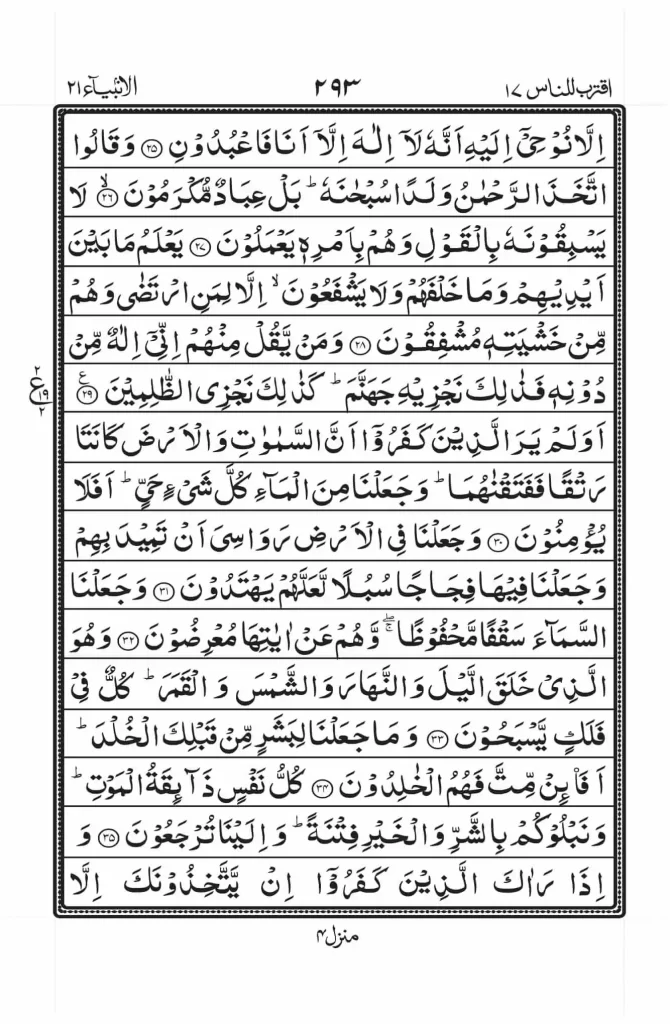 اقترب للناس ١٧ ٢٩٣ الانبيآء ٢١
اِلَّا نُوۡحِىۡۤ اِلَيۡهِ اَنَّهٗ لَاۤ اِلٰهَ اِلَّاۤ اَنَا فَاعۡبُدُوۡنِ ﴿٢٥﴾ وَقَالُوا
اتَّخَذَ الرَّحۡمٰنُ وَلَدًا سُبۡحٰنَهٗ ؕ بَلۡ عِبَادٌ مُّكۡرَمُوۡنَ ۙ﴿٢٦﴾ لَا
يَسۡبِقُوۡنَهٗ بِالۡقَوۡلِ وَهُمۡ بِاَمۡرِهٖ يَعۡمَلُوۡنَ ﴿٢٧﴾ يَعۡلَمُ مَا بَيۡنَ
اَيۡدِيۡهِمۡ وَمَا خَلۡفَهُمۡ وَلَا يَشۡفَعُوۡنَ ۙ اِلَّا لِمَنِ ارۡتَضٰى وَهُمۡ
مِّنۡ خَشۡيَتِهٖ مُشۡفِقُوۡنَ ﴿٢٨﴾ وَمَنۡ يَّقُلۡ مِنۡهُمۡ اِنِّىۡۤ اِلٰهٌ مِّنۡ
دُوۡنِهٖ فَذٰلِكَ نَجۡزِيۡهِ جَهَنَّمَ ؕ كَذٰلِكَ نَجۡزِى الظّٰلِمِيۡنَ ﴿٢٩﴾ ع
٢ ع ١٩ ٢
اَوَلَمۡ يَرَ الَّذِيۡنَ كَفَرُوۡۤا اَنَّ السَّمٰوٰتِ وَالۡاَرۡضَ كَانَتَا
رَتۡقًا فَفَتَقۡنٰهُمَا ؕ وَجَعَلۡنَا مِنَ الۡمَآءِ كُلَّ شَىۡءٍ حَىٍّ ؕ اَفَلَا
يُؤۡمِنُوۡنَ ﴿٣٠﴾ وَجَعَلۡنَا فِى الۡاَرۡضِ رَوَاسِىَ اَنۡ تَمِيۡدَ بِهِمۡ
وَجَعَلۡنَا فِيۡهَا فِجَاجًا سُبُلًا لَّعَلَّهُمۡ يَهۡتَدُوۡنَ ﴿٣١﴾ وَجَعَلۡنَا
السَّمَآءَ سَقۡفًا مَّحۡفُوۡظًا ۖۚ وَّهُمۡ عَنۡ اٰيٰتِهَا مُعۡرِضُوۡنَ ﴿٣٢﴾ وَهُوَ
الَّذِىۡ خَلَقَ الَّيۡلَ وَالنَّهَارَ وَالشَّمۡسَ وَالۡقَمَرَ ؕ كُلٌّ فِىۡ
فَلَكٍ يَّسۡبَحُوۡنَ ﴿٣٣﴾ وَمَا جَعَلۡنَا لِبَشَرٍ مِّنۡ قَبۡلِكَ الۡخُلۡدَ ؕ
اَفَا۟ئِنۡ مِّتَّ فَهُمُ الۡخٰلِدُوۡنَ ﴿٣٤﴾ كُلُّ نَفۡسٍ ذَآئِقَةُ الۡمَوۡتِ ؕ
وَنَبۡلُوۡكُمۡ بِالشَّرِّ وَالۡخَيۡرِ فِتۡنَةً ؕ وَاِلَيۡنَا تُرۡجَعُوۡنَ ﴿٣٥﴾ وَ
اِذَا رَاٰكَ الَّذِيۡنَ كَفَرُوۡۤا اِنۡ يَّتَّخِذُوۡنَكَ اِلَّا
منزل ٤